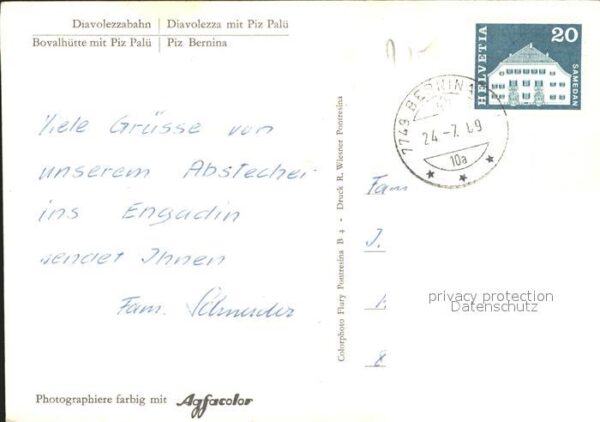 Diavolezzabahn | Diavolezza mit Piz Palü
Bovalhütte mit Piz Palü | Piz Bernina
HELVETIA
20
SAMEDAN
7749 BERNINA
24-7.69
10a
Viele Grüsse von
unserem Abstecher
ins Engadin
sendet Ihnen
Fam. Schneider
Colorphoto Flury Pontresina B 4 - Druck R. Wiesner Pontresina
Fam
J.
privacy protection
Datenschutz
8
Photographiere farbig mit Agfacolor